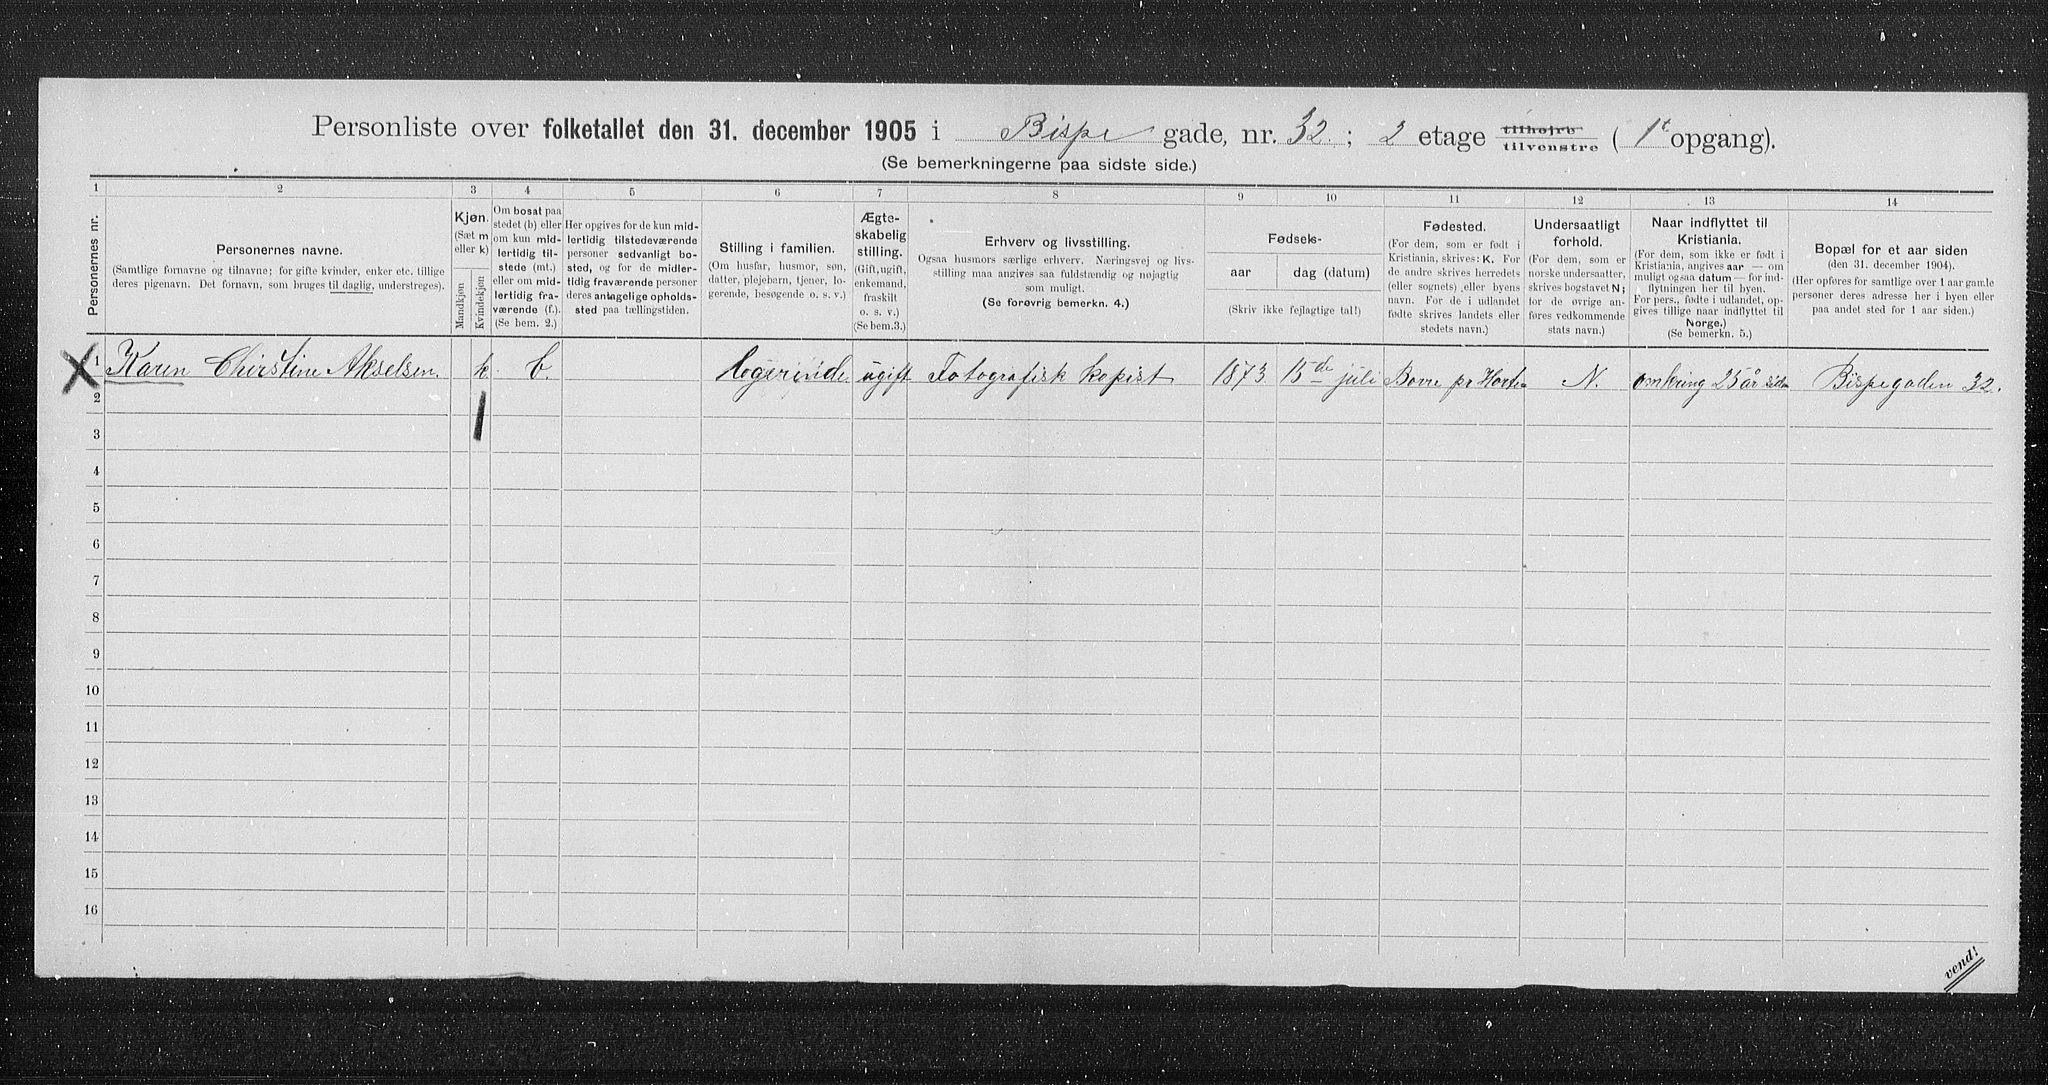 Personliste over folketallet den 31. december 1905 i Bispe gade, nr. 32 ; 2 etage tilhøjre tilvenstre ( 1t opgang).
(Se bemerkningerne paa sidste side.)
1 2 3 4 5 6 7 8 9 10 11 12 13 14
Personernes nr.
Personernes navne.
(Samtlige fornavne og tilnavne; for gifte kvinder, enker etc. tillige
deres pigenavn. Det fornavn, som bruges til daglig, understreges).
Kjøn.
(Sæt m
eller k)
Mandkjøn
Kvindekjøn
Om bosat paa
stedet (b) eller
om kun mid-
lertidig til-
stede (mt.)
eller om mid-
lertidig fra-
værende (f.).
(Se bem. 2.)
Her opgives for de kun mid-
lertidig tilstedeværende
personer sedvanligt bo-
sted, og for de midler-
tidig fraværende personer
deres antagelige opholds-
sted paa tællingstiden.
Stilling i familien.
(Om husfar, husmor, søn,
datter, plejebarn, tjener, lo-
gerende, besøgende o. s. v.)
Ægte-
skabelig
stilling.
(Gift, ugift,
enkemand,
fraskilt
o. s. v.)
(Se bem. 3.)
Erhverv og livsstilling.
Ogsaa husmors særlige erhverv. Næringsvej og livs-
stilling maa angives saa fuldstændig og nøjagtig
som muligt.
(Se forøvrig bemerkn. 4.)
Fødsels-
aar
dag (datum)
(Skriv ikke fejlagtige tal!)
Fødested.
(For dem, som er født i
Kristiania, skrives: K. For
de andre skrives herredets
(eller sognets) eller byens
navn. For de i udlandet
fødte skrives landets eller
stedets navn.)
Undersaatligt
forhold.
(For dem, som er
norske undersaatter,
skrives bogstavet N;
for de øvrige an-
føres vedkommende
stats navn.)
Naar indflyttet til
Kristiania.
(For dem, som ikke er født i
Kristiania, angives aar — om
muligt ogsaa datum — for ind-
flytningen her til byen.
For pers., fødte i udlandet, op-
gives tillige naar indflyttet til
Norge.)
(Se bemerkn. 5.)
Bopæl for et aar siden
(den 31. december 1904).
(Her opføres for samtlige over 1 aar gamle
personer deres adresse her i byen eller
paa andet sted for 1 aar siden.)
X 1 Karen Chirstine Akselsen. k. b. logerende ugift Fotografisk kopist 1873 15de juli Borre pr Horten N. omkring 25 år siden Bispegaden 32.
2
3
4
5
6
7
8
9
10
11
12
13
14
15
16
vend!